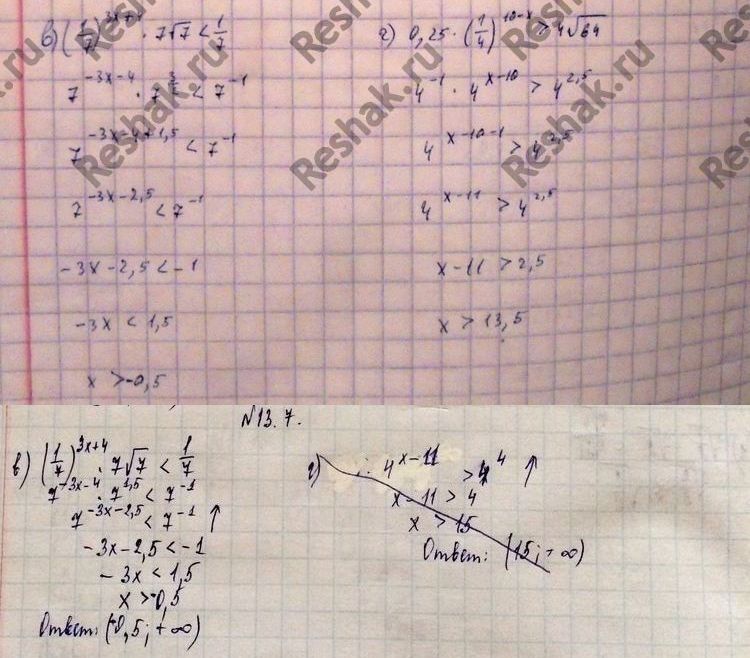 в) (1/7)^(3x+4) · 7√7 < 1/7
7^(-3x-4) · 7^(3/2) < 7^(-1)
7^(-3x-4+1,5) < 7^(-1)
7^(-3x-2,5) < 7^(-1)
-3x-2,5 < -1
-3x < 1,5
x > -0,5
г) 0,25 · (1/4)^(10-x) > 4√64
4^(-1) · 4^(x-10) > 4^(2,5)
4^(x-10-1) > 4^(2,5)
4^(x-11) > 4^(2,5)
x-11 > 2,5
x > 13,5
Reshak.ru
Reshak.ru
Reshak.ru
Reshak.ru
Reshak.ru
N13.7.
в) (1/7)^(3x+4) · 7√7 < 1/7
7^(-3x-4) · 7^(1,5) < 7^(-1)
7^(-3x-2,5) < 7^(-1) ↑
-3x-2,5 < -1
-3x < 1,5
x > -0,5
Ответ: (-0,5; +∞)
г) 4^(x-11) > 4^4 ↑
x-11 > 4
x > 15
Ответ: (15; +∞)